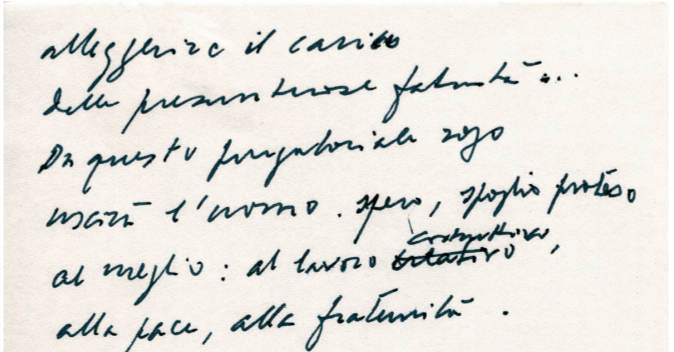 alleggerire il carico
delle presuntuose fatuità...
Da questo purgatoriale rogo
uscirà l'uomo. spero, spoglio proteso
al meglio: al lavoro costruttivo,
alla pace, alla fraternità.